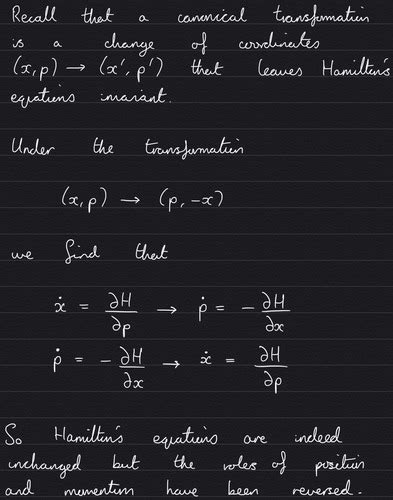 Recall that a canonical transformation
is a change of coordinates
(x,p) → (x', p') that leaves Hamilton's
equations invariant.
Under the transformation
(x,p) → (p, -x)
we find that
ẋ = ∂H/∂p → ṗ = - ∂H/∂x
ṗ = - ∂H/∂x → ẋ = ∂H/∂p
So Hamilton's equations are indeed
unchanged but the roles of position
and momentum have been reversed.